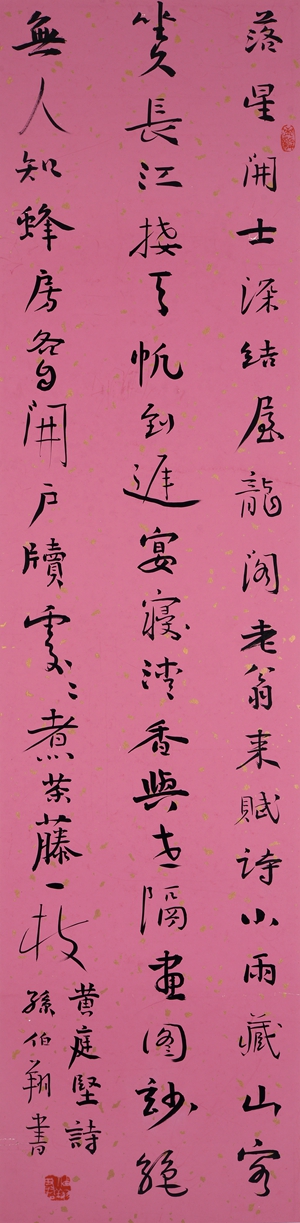 落星開士深結屋龍閣老翁来賦詩小雨藏山客
坐久長江接天帆到遲宴寢清香與世隔畫图妙絶
無人知蜂房各自開户牖處々煮茶藤一枝
黄庭堅詩
孫伯翔書